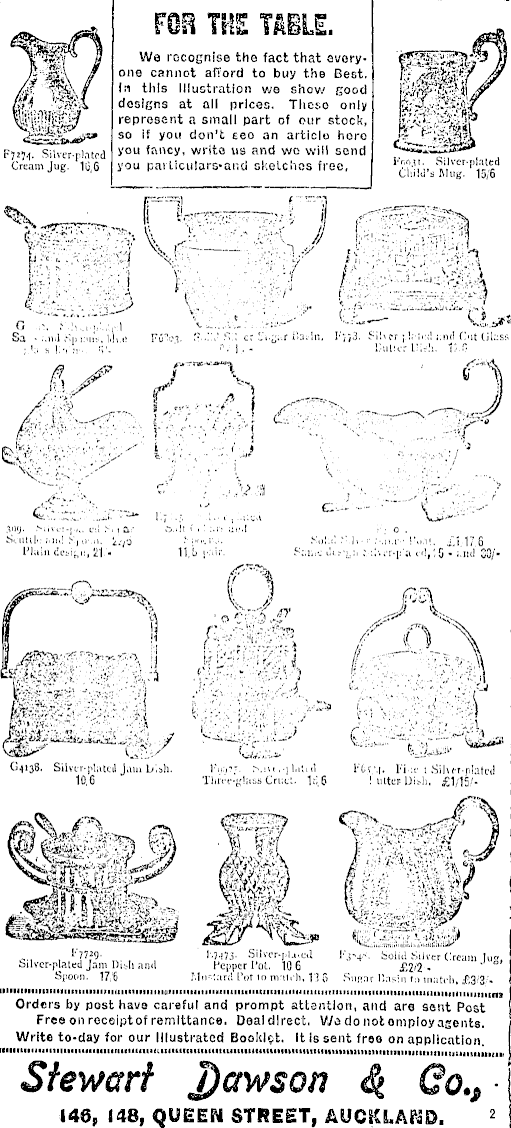 FOR THE TABLE.
We recognise the fact that every-
one cannot afford to buy the Best.
In this Illustration we show good
designs at all prices. These only
represent a small part of our stock,
so if you don't see an article here
you fancy, write us and we will send
you particulars and sketches free.
F7274. Silver-plated
Cream Jug. 10/6
Silver-plated
Child's Mug. 15/6
Sugar Basin,
F778. Silver plated and Cut Glass
Butter Dish.
Scuttle and Spoon.
Plain design, 21/-
Salt and
Spoons.
pair.
Solid Silver Sauce Boat. £1/17/6
Same design Silver-plated, and 30/-
G4138. Silver-plated Jam Dish.
10/6
Silver-plated
Three-glass Cruet.
Silver-plated
Butter Dish. £1/15/-
F7729.
Silver-plated Jam Dish and
Spoon. 17/6
Silver-plated
Pepper Pot. 10/6
Mustard Pot to match, 13/6
Solid Silver Cream Jug,
£2/2/-
Sugar Basin to match, £3/3/-
Orders by post have careful and prompt attention, and are sent Post
Free on receipt of remittance. Deal direct. We do not employ agents.
Write to-day for our Illustrated Booklet. It is sent free on application.
Stewart Dawson & Co.,
146, 148, QUEEN STREET, AUCKLAND. 2